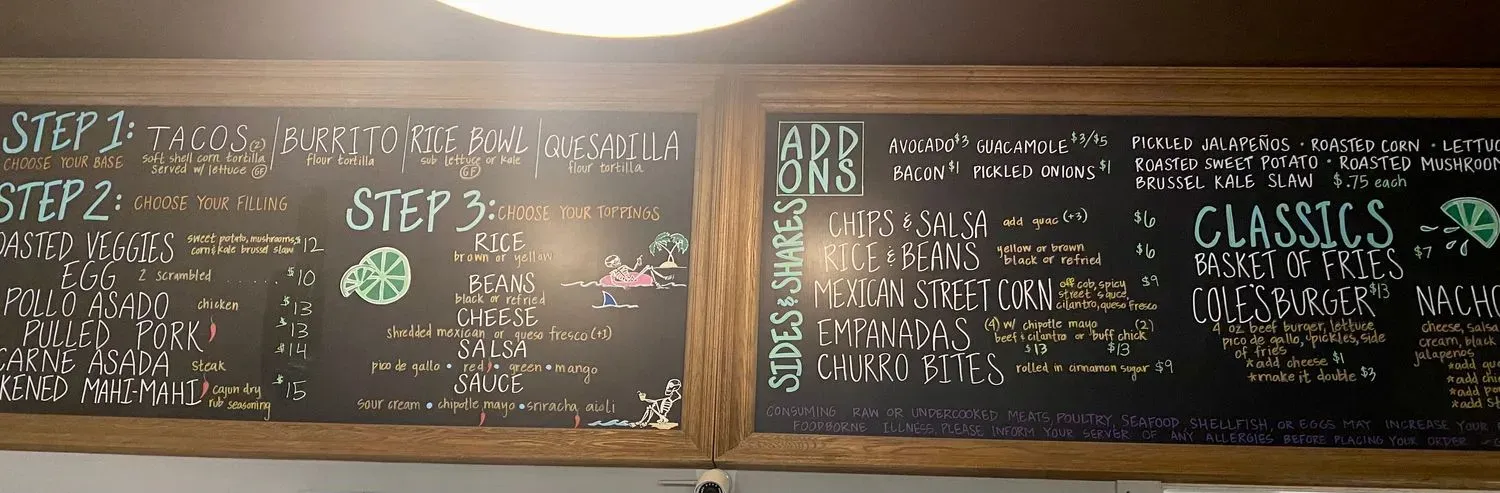 STEP 1:
CHOOSE YOUR BASE
TACOS (2)
soft shell corn tortilla
served w/ lettuce GF
BURRITO
flour tortilla
RICE BOWL
sub lettuce or kale
GF
QUESADILLA
flour tortilla
STEP 2: CHOOSE YOUR FILLING
OASTED VEGGIES sweet potato, mushrooms, $12
corn & kale brussel slaw
EGG 2 scrambled ........ $10
POLLO ASADO chicken $13
PULLED PORK $13
CARNE ASADA steak $14
KENED MAHI-MAHI cajun dry $15
rub seasoning
STEP 3: CHOOSE YOUR TOPPINGS
RICE
brown or yellow
BEANS
black or refried
CHEESE
shredded mexican or queso fresco (+1)
SALSA
pico de gallo • red • green • mango
SAUCE
sour cream • chipotle mayo • sriracha aioli
ADD
ONS
AVOCADO $3 GUACAMOLE $3/$5
BACON $1 PICKLED ONIONS $1
PICKLED JALAPEÑOS • ROASTED CORN • LETTUC
ROASTED SWEET POTATO • ROASTED MUSHROOM
BRUSSEL KALE SLAW $.75 each
SIDES & SHARES
CHIPS & SALSA add guac (+3) $6
RICE & BEANS yellow or brown $6
black or refried
MEXICAN STREET CORN off cob, spicy $9
street sauce,
cilantro, queso fresco
EMPANADAS (4) w/ chipotle mayo (2)
beef & cilantro or buff chick
$13 $13
CHURRO BITES rolled in cinnamon sugar $9
CLASSICS
BASKET OF FRIES $7
COLE'S BURGER $13
4 oz beef burger, lettuce,
pico de gallo, pickles, side
of fries
*add cheese $1
*make it double $3
NACHO
cheese, salsa
cream, black
jalapenos
*add
*add
*add
*add
CONSUMING RAW OR UNDERCOOKED MEATS, POULTRY, SEAFOOD, SHELLFISH, OR EGGS MAY INCREASE YOUR
FOODBORNE ILLNESS, PLEASE INFORM YOUR SERVER OF ANY ALLERGIES BEFORE PLACING YOUR ORDER